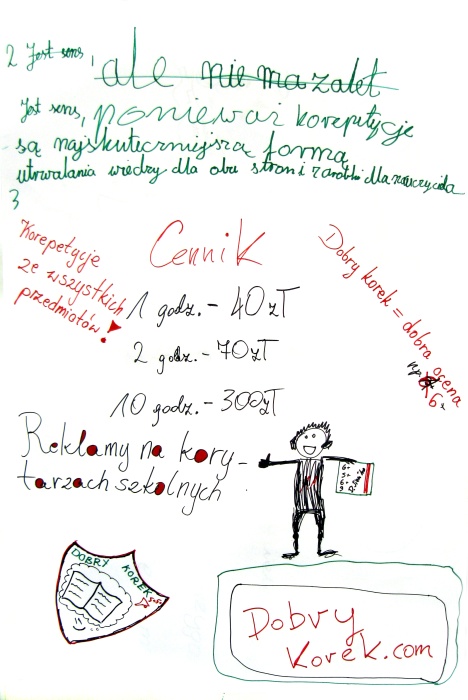 2 Jest sens,
ale nie ma zalet
Jest sens, ponieważ korepetycje
są najskuteczniejszą formą
utrwalania wiedzy dla obu stron i zarobki dla nauczyciela
3
Korepetycje
ze wszystkich
przedmiotów!
Cennik
1 godz. - 40 zł
2 godz. - 70 zł
10 godz. - 300 zł
Dobry korek = dobra ocena
np. 6
Reklamy na kory-
tarzach szkolnych
6+
5+
6+
DOBRY KOREK
Dobry
Korek.com